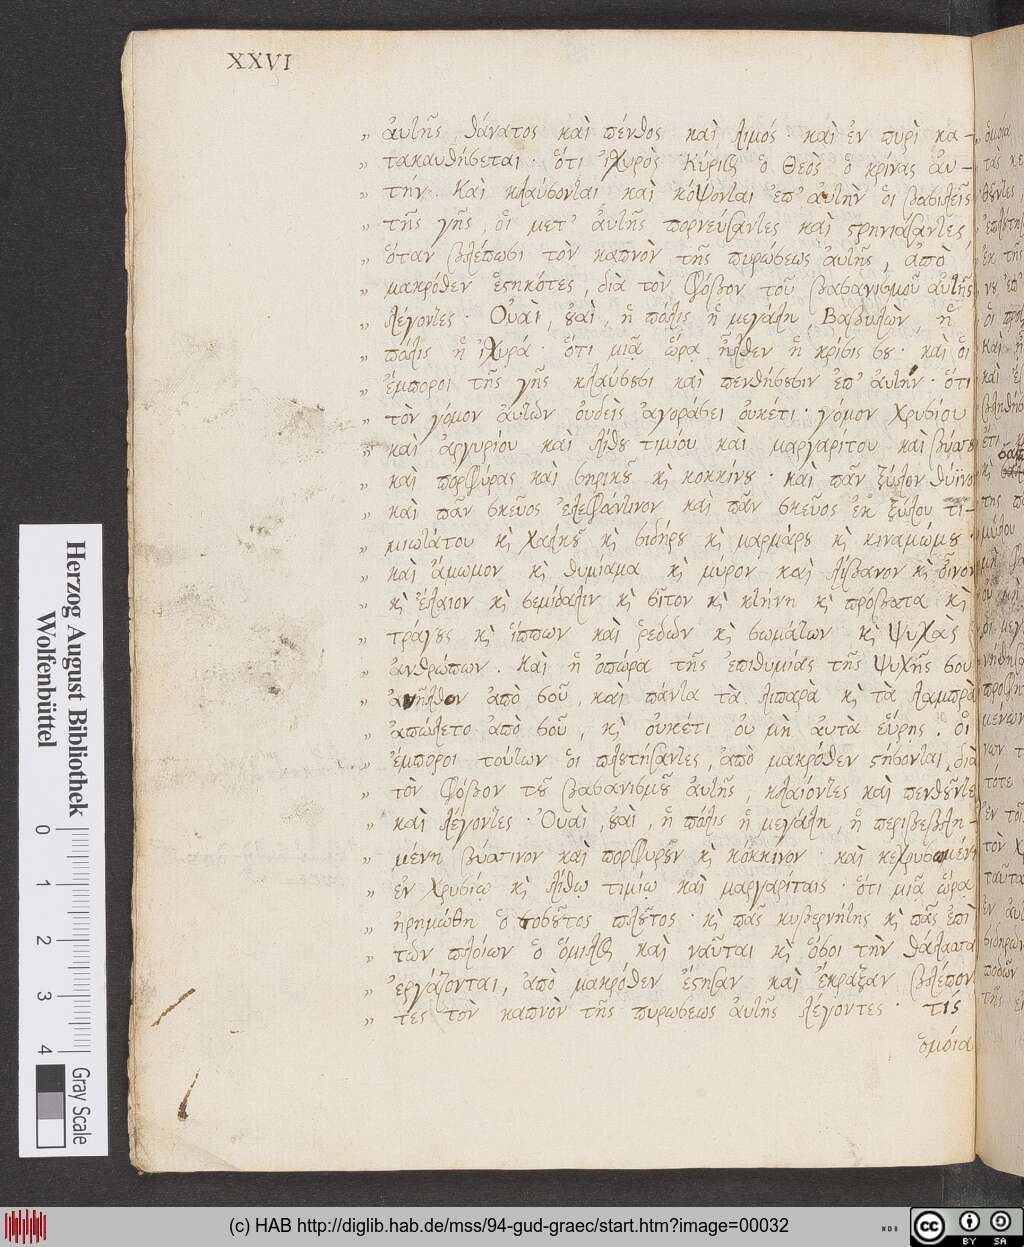 XXVI
„ ἀυτῆς θάνατος καὶ πένθος καὶ λιμός· καὶ ἐν πυρὶ κα-
„ τακαυθήσεται· ὅτι ἰχυρὸς Κύριος ὁ Θεὸς ὁ κρίνας ἀυ-
„ τήν· Καὶ κλαύσονται καὶ κόψονται ἐπ' ἀυτὴν ὁι βασιλεῖς
„ τῆς γῆς, ὁι μετ' ἀυτῆς πορνεύσαντες καὶ στρηνιάσαντες,
„ ὅταν βλέπωσι τὸν καπνὸν τῆς πυρώσεως ἀυτῆς, ἀπὸ
„ μακρόθεν ἑστηκότες, διὰ τὸν φόβον τοῦ βασανισμοῦ ἀυτῆς
„ λέγοντες· Οὐαὶ, ȣαὶ, ἡ πόλις ἡ μεγάλη, Βαβυλὼν, ἡ
„ πόλις ἡ ἰχυρά· ὅτι μιᾷ ὥρᾳ ἦλθεν ἡ κρίσις σȣ· καὶ ὁι
„ ἔμποροι τῆς γῆς κλαύσȣσι καὶ πενθήσȣσιν ἐπ' ἀυτήν· ὅτι
„ τὸν γόμον ἀυτῶν ὀυδεὶς ἀγοράσει ὀυκέτι· γόμον χρυσίου
„ καὶ ἀργυρίου καὶ λίθȣ τιμίου καὶ μαργαρίτου καὶ βύσσȣ
„ καὶ πορφύρας καὶ σηρικȣ͂ κ̀ κοκκίνȣ· καὶ πᾶν ξύλον θύϊνον
„ καὶ πᾶν σκεῦος ἐλεφάντινον καὶ πᾶν σκεῦος ἐκ ξύλου τι-
„ μιωτάτου κ̀ χαλκȣ͂ κ̀ σιδήρȣ κ̀ μαρμάρȣ κ̀ κιναμώμȣ·
„ καὶ ἄμωμον κ̀ θυμίαμα κ̀ μύρον καὶ λίβανον κ̀ οἶνον
„ κ̀ ἔλαιον κ̀ σεμίδαλιν κ̀ σῖτον κ̀ κτήνη κ̀ πρόβατα κ̀
„ τράγȣς κ̀ ἵππων καὶ ῥεδῶν κ̀ σωμάτων κ̀ Ψυχὰς
„ ἀνθρώπων. Καὶ ἡ ὀπώρα τῆς ἐπιθυμίας τῆς Ψυχῆς σου
„ ἀπῆλθον ἀπὸ σοῦ, καὶ πάντα τὰ λιπαρὰ κ̀ τὰ λαμπρὰ
„ ἀπώλετο ἀπὸ σοῦ, κ̀ ὀυκέτι ὀυ μὴ ἀυτὰ εὕρης. Οἱ
„ ἔμποροι τούτων ὁι πλȣτήσαντες, ἀπὸ μακρόθεν στήσονται, διὰ
„ τὸν φόβον τȣ͂ βασανισμȣ͂ ἀυτῆς, κλαίοντες καὶ πενθȣ͂ντες
„ καὶ λέγοντες· Ὀυαὶ, ȣαὶ, ἡ πόλις ἡ μεγάλη, ἡ περιβεβλη-
„ μένη βύσσινον καὶ πορφυρȣ͂ν κ̀ κόκκινον· καὶ κεχρυσωμένη
„ ἐν χρυσίῳ κ̀ λίθῳ τιμίῳ καὶ μαργαρίταις· ὅτι μιᾷ ὥρᾳ
„ ἠρημώθη ὁ τοσȣ͂τος πλȣ͂τος· κ̀ πᾶς κυβερνήτης κ̀ πᾶς ἐπὶ
„ τῶν πλοίων ὁ ὅμιλος, καὶ ναῦται κ̀ ὅσοι τὴν θάλασσαν
„ ἐργάζονται, ἀπὸ μακρόθεν ἔστησαν καὶ ἔκραξαν βλέπον
„ τες τὸν καπνὸν τῆς πυρώσεως ἀυτῆς λέγοντες· τίς
ὁμοία
Herzog August Bibliothek
Wolfenbüttel
0 1 2 3 4
Gray Scale
(c) HAB http://diglib.hab.de/mss/94-gud-graec/start.htm?image=00032
WDB
cc BY SA